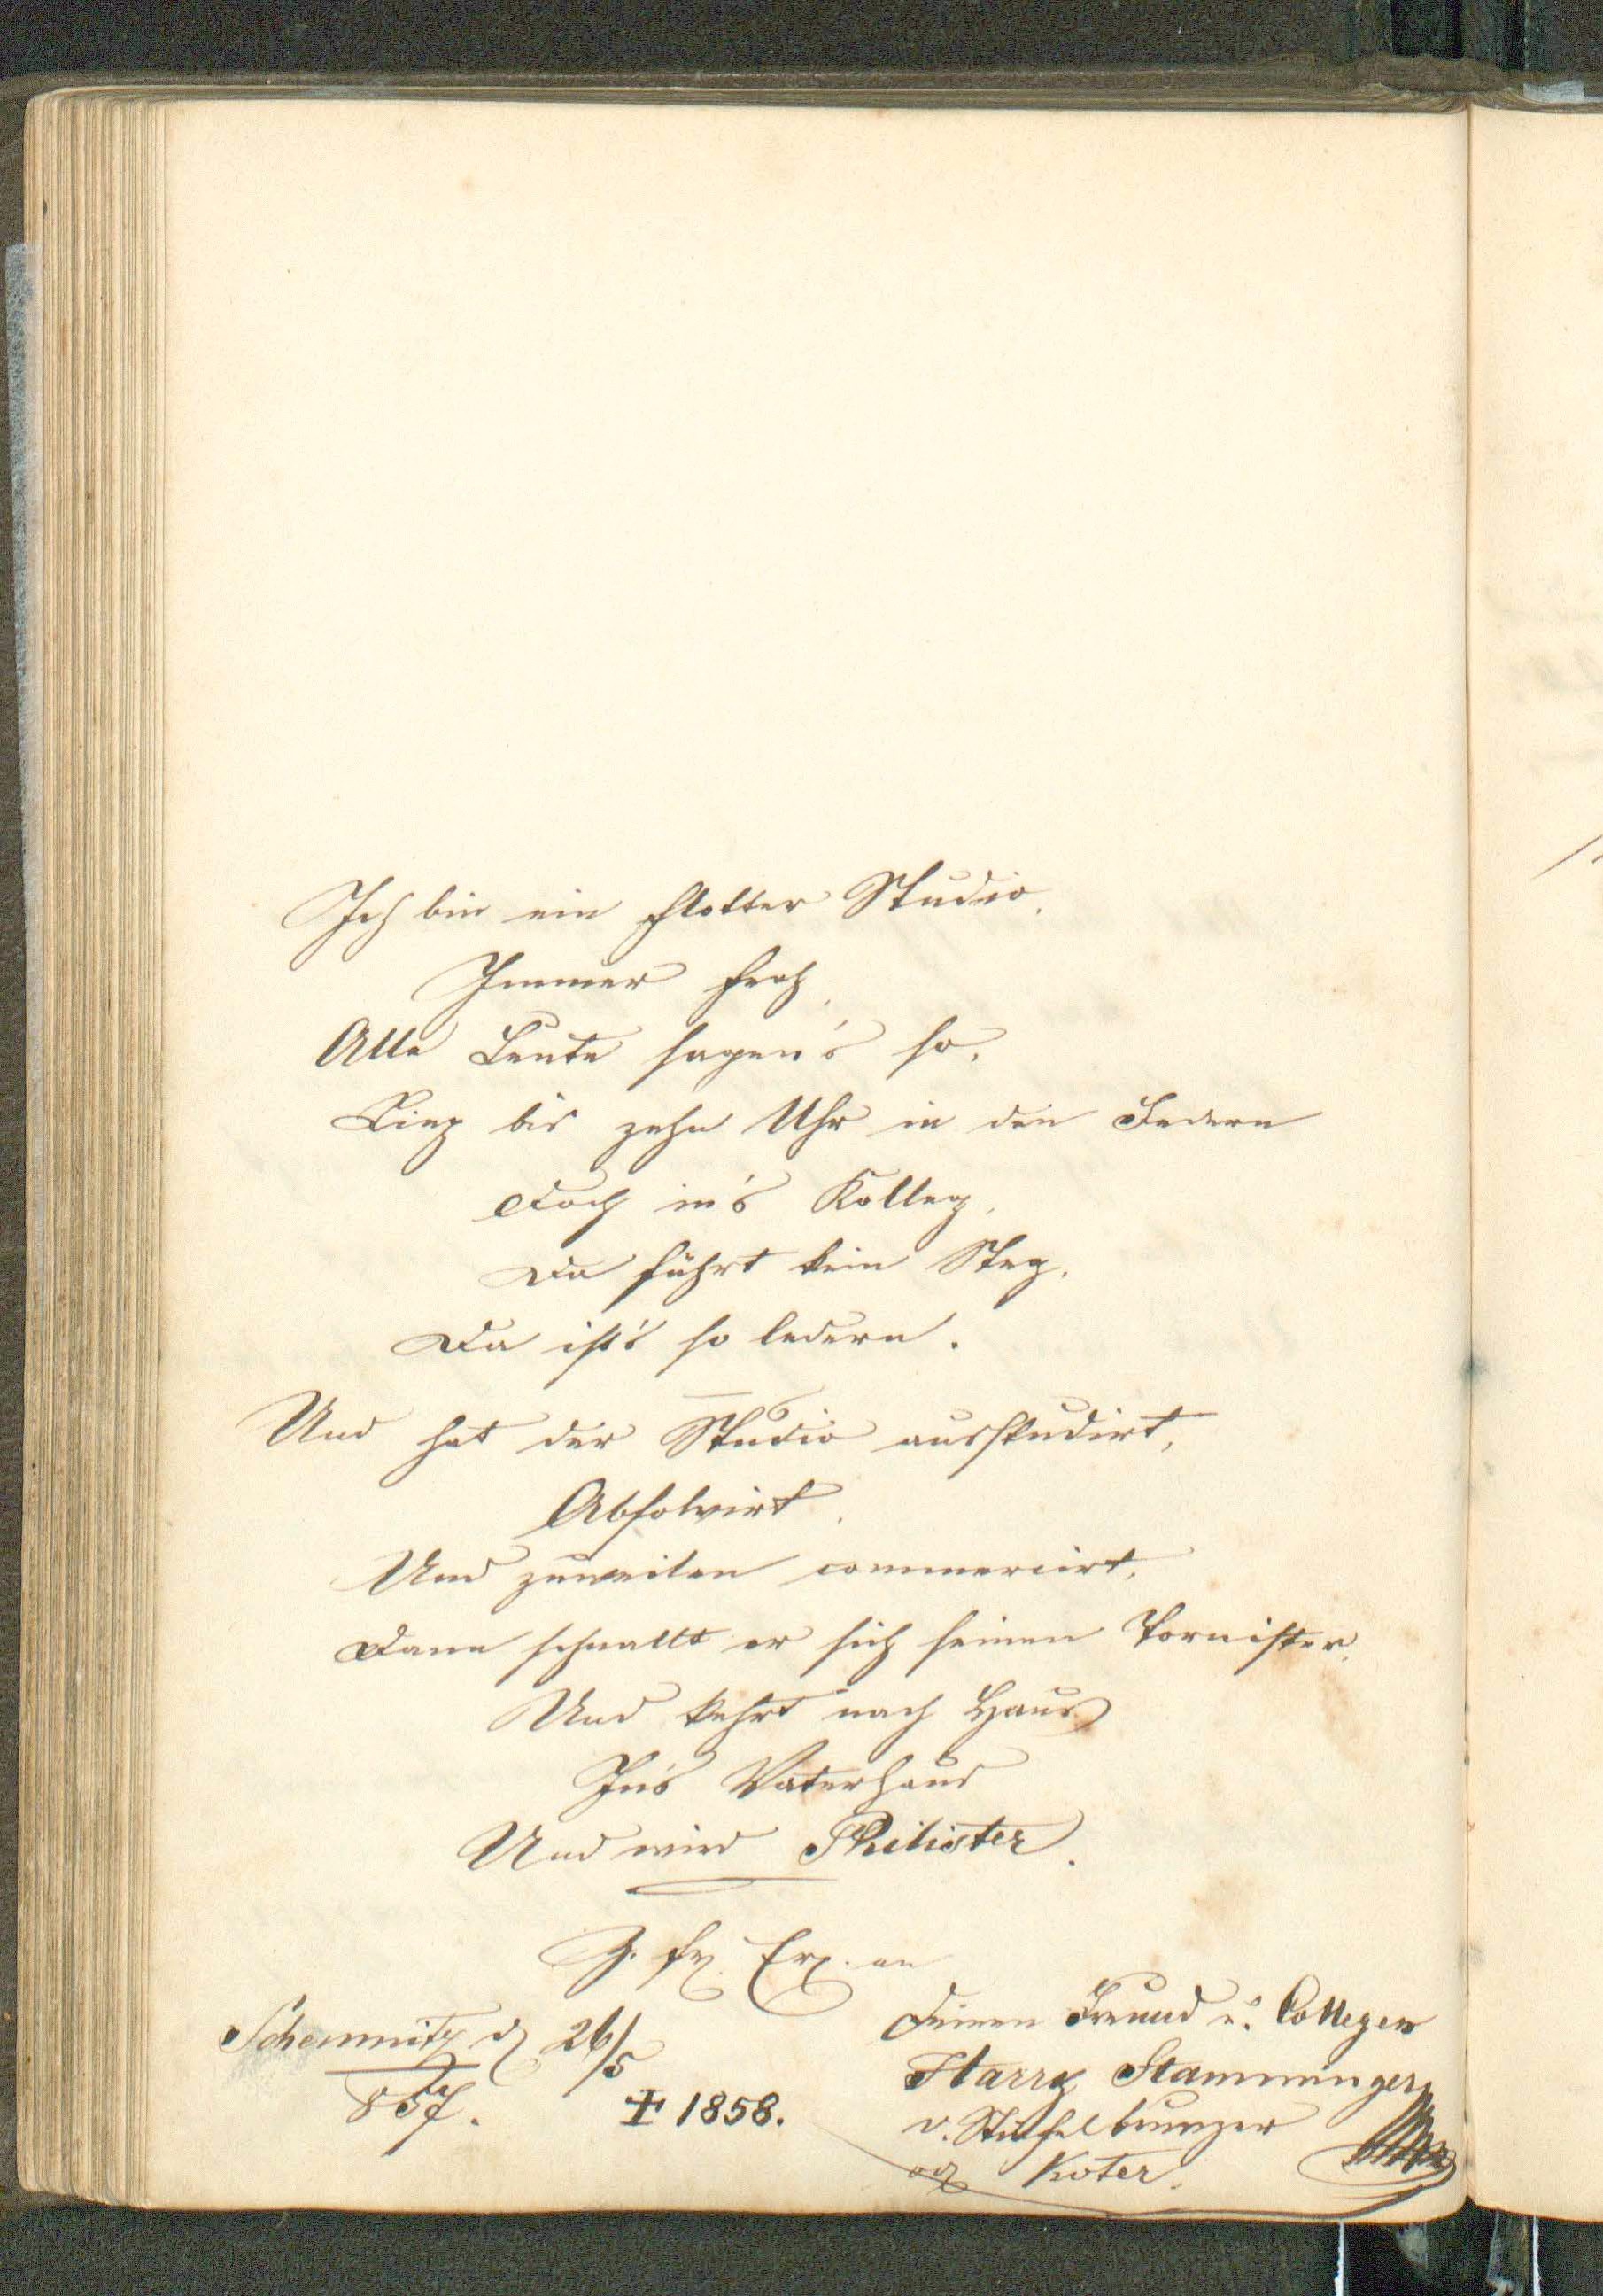 Ich bin ein flotter Studio,
Immer froh,
Alle Leute sagen's so.
Lieg bis zehn Uhr in den Federn
Doch in's Kolleg,
Da führt kein Steg.
Da ist's so ledern.
Und hat der Studio ausstudirt,
Absolvirt,
Und zuweilen commercirt,
Dann schnallt er sich seinen Tornister,
Und kehrt nach Haus
In's Vaterhaus
Und wird Philister.
Z. fr. Er. an
Schemnitz d 26/5
857.
† 1858.
Deinen Freund u. Collegen
Harry Stamminger
v.
Koter.